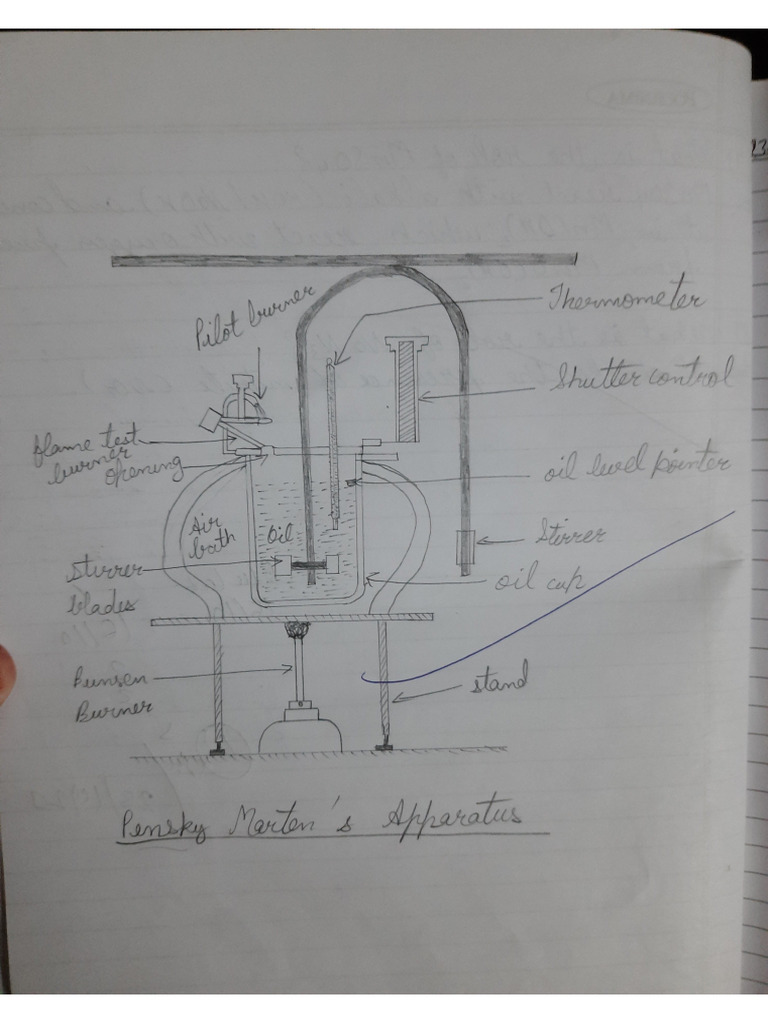 Pilot burner
Thermometer
Shutter control
flame test
burner
opening
oil level pointer
Air
bath
Oil
Stirrer
Stirrer
blades
oil cup
Bunsen
Burner
stand
Pensky Marten's Apparatus